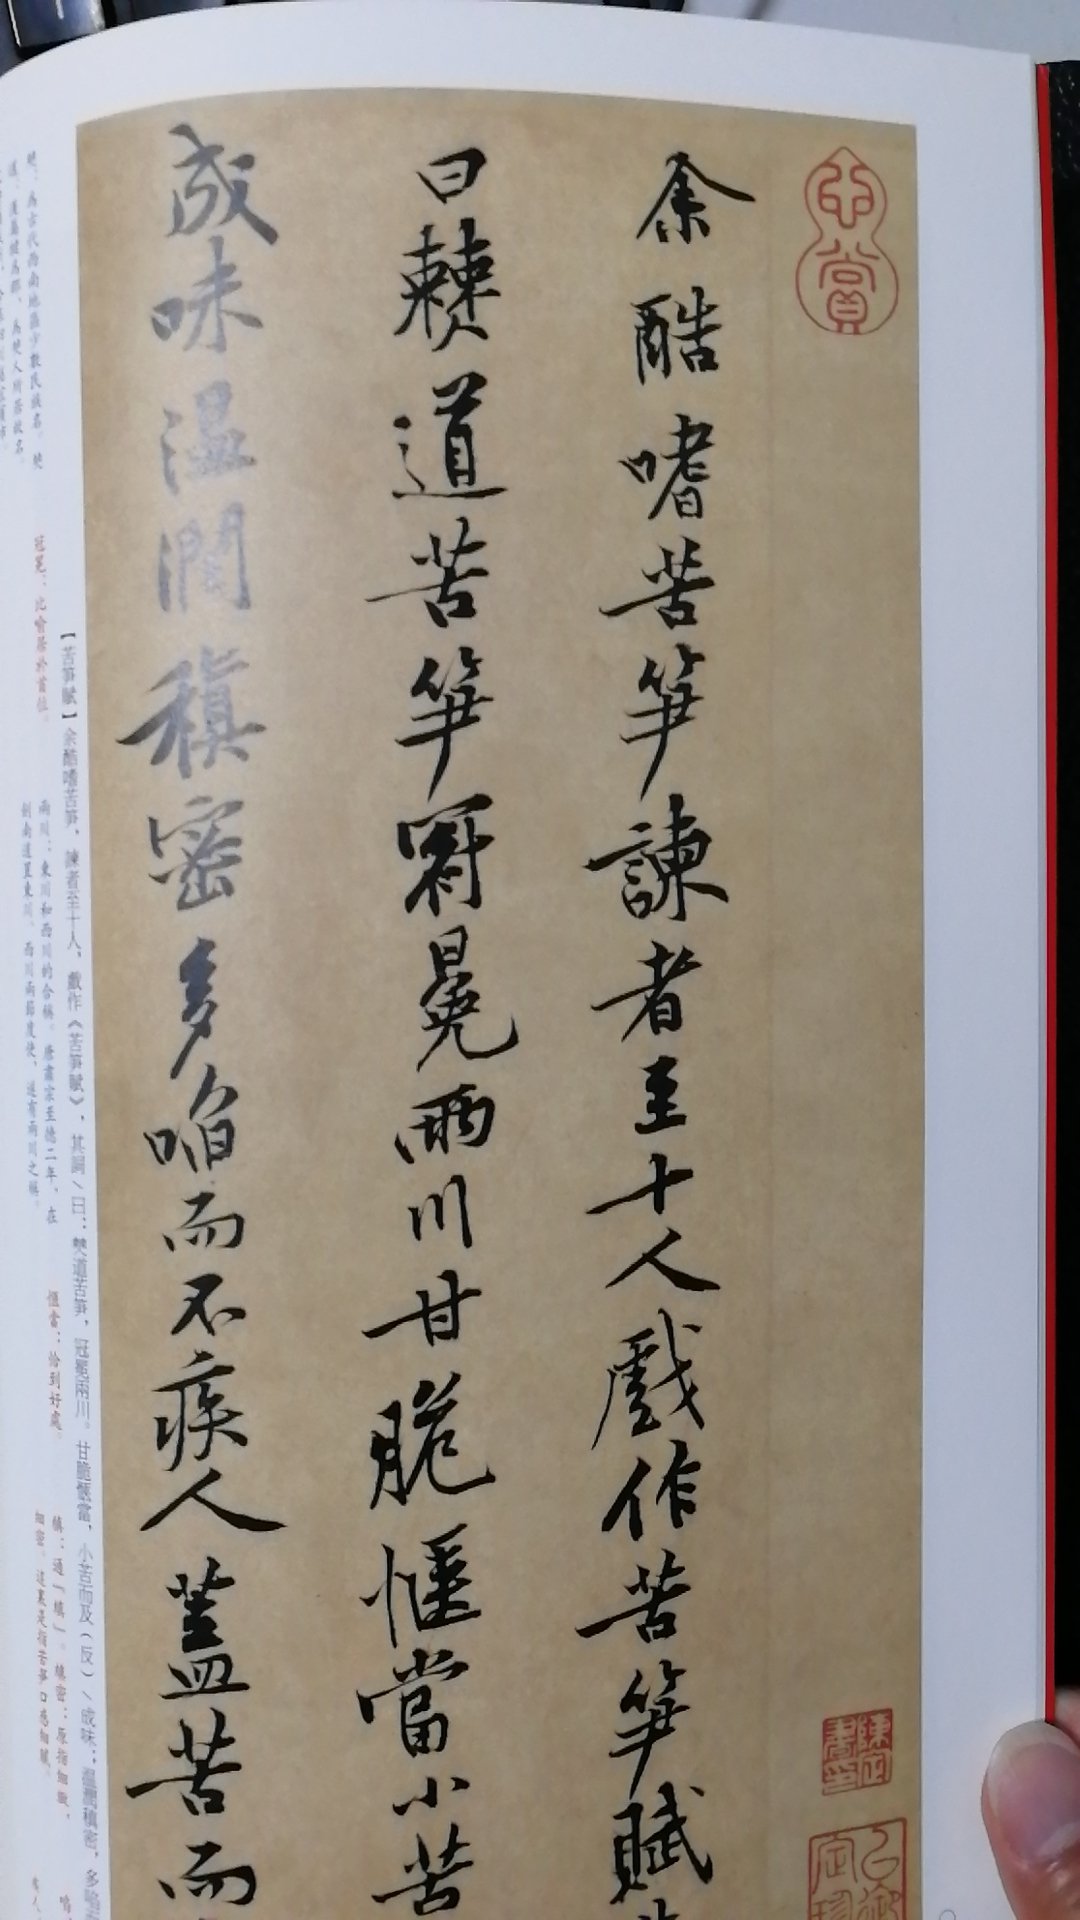 余酷嗜苦笋諫者至十人戲作苦笋賦
曰僰道苦笋冠冕兩川甘脆愜當小苦
成味温潤稹密多啗而不疾人蓋苦而
【苦笋賦】余酷嗜苦笋，諫者至十人，戲作《苦笋賦》，其詞\曰：僰道苦笋，冠冕兩川。甘脆愜當，小苦而及（反）\成味；温潤稹密，多啗
僰：爲古代西南地區少數民族名。僰
道：漢屬犍爲郡，爲僰人所居故名。
冠冕：比喻居於首位。
兩川：東川和西川的合稱。唐肅宗至德二年，在
劍南道置東川、西川兩節度使，遂有兩川之稱。
愜當：恰到好處。
稹：通「縝」。稹密：原指細緻、
細密。這裏是指苦笋口感細膩。